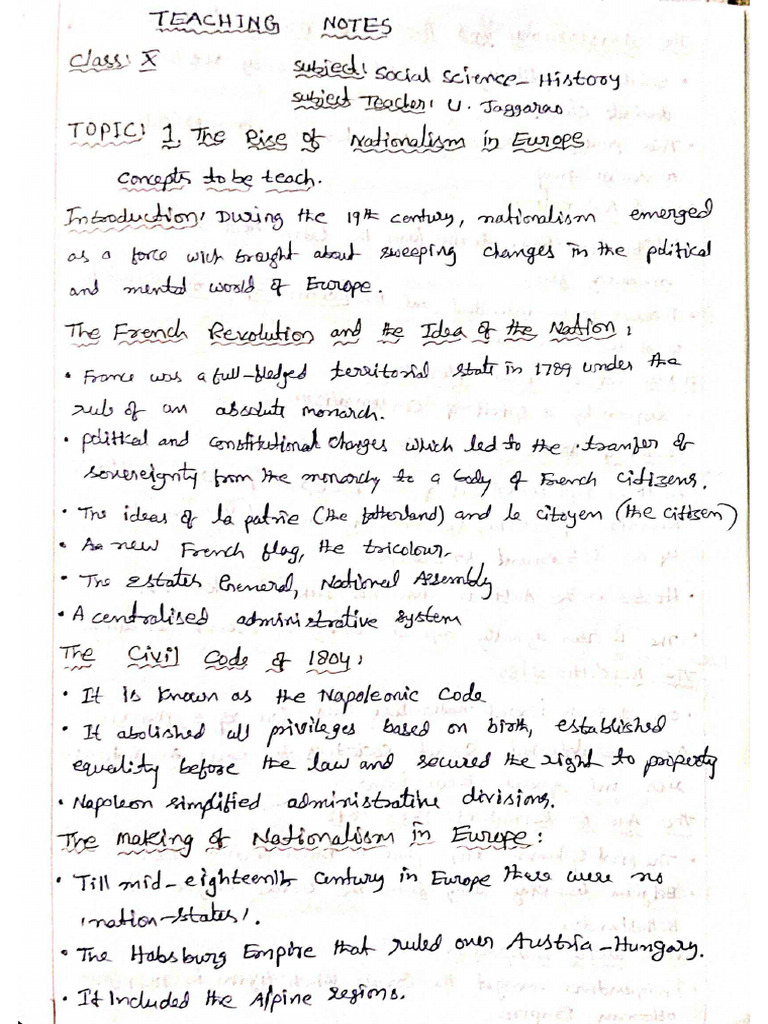 TEACHING NOTES
Class: X
Subject: Social Science - History
Subject Teacher: U. Jaggarao
TOPIC: 1. The Rise of Nationalism in Europe
Concepts to be teach.
Introduction: During the 19th century, nationalism emerged
as a force wich braught about sweeping changes in the political
and mental world of Europe.
The French Revolution and the Idea of the Nation:
• France was a full-fledged territorial state in 1789 under the
rule of an absolute monarch.
• political and constitutional changes which led to the tranfer of
sovereignty from the monarchy to a body of French citizens.
• The ideas of la patrie (the fatherland) and le citoyen (the citizen)
• A new French flag, the tricolour.
• The Estates General, National Assembly
• A centralised administrative system
The Civil Code of 1804:
• It is known as the Napoleonic Code
• It abolished all privileges based on birth, established
equality before the law and secured the right to property
• Napoleon simplified administrative divisions.
The making of Nationalism in Europe:
• Till mid-eighteenth century in Europe there were no
'nation-states'.
• The Habsburg Empire that ruled over Austria-Hungary.
• It included the Alpine regions.